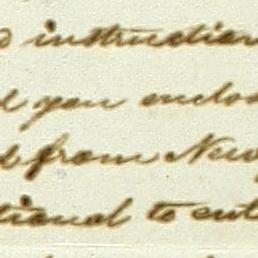 instruction
you enclos
from New
tional to ent